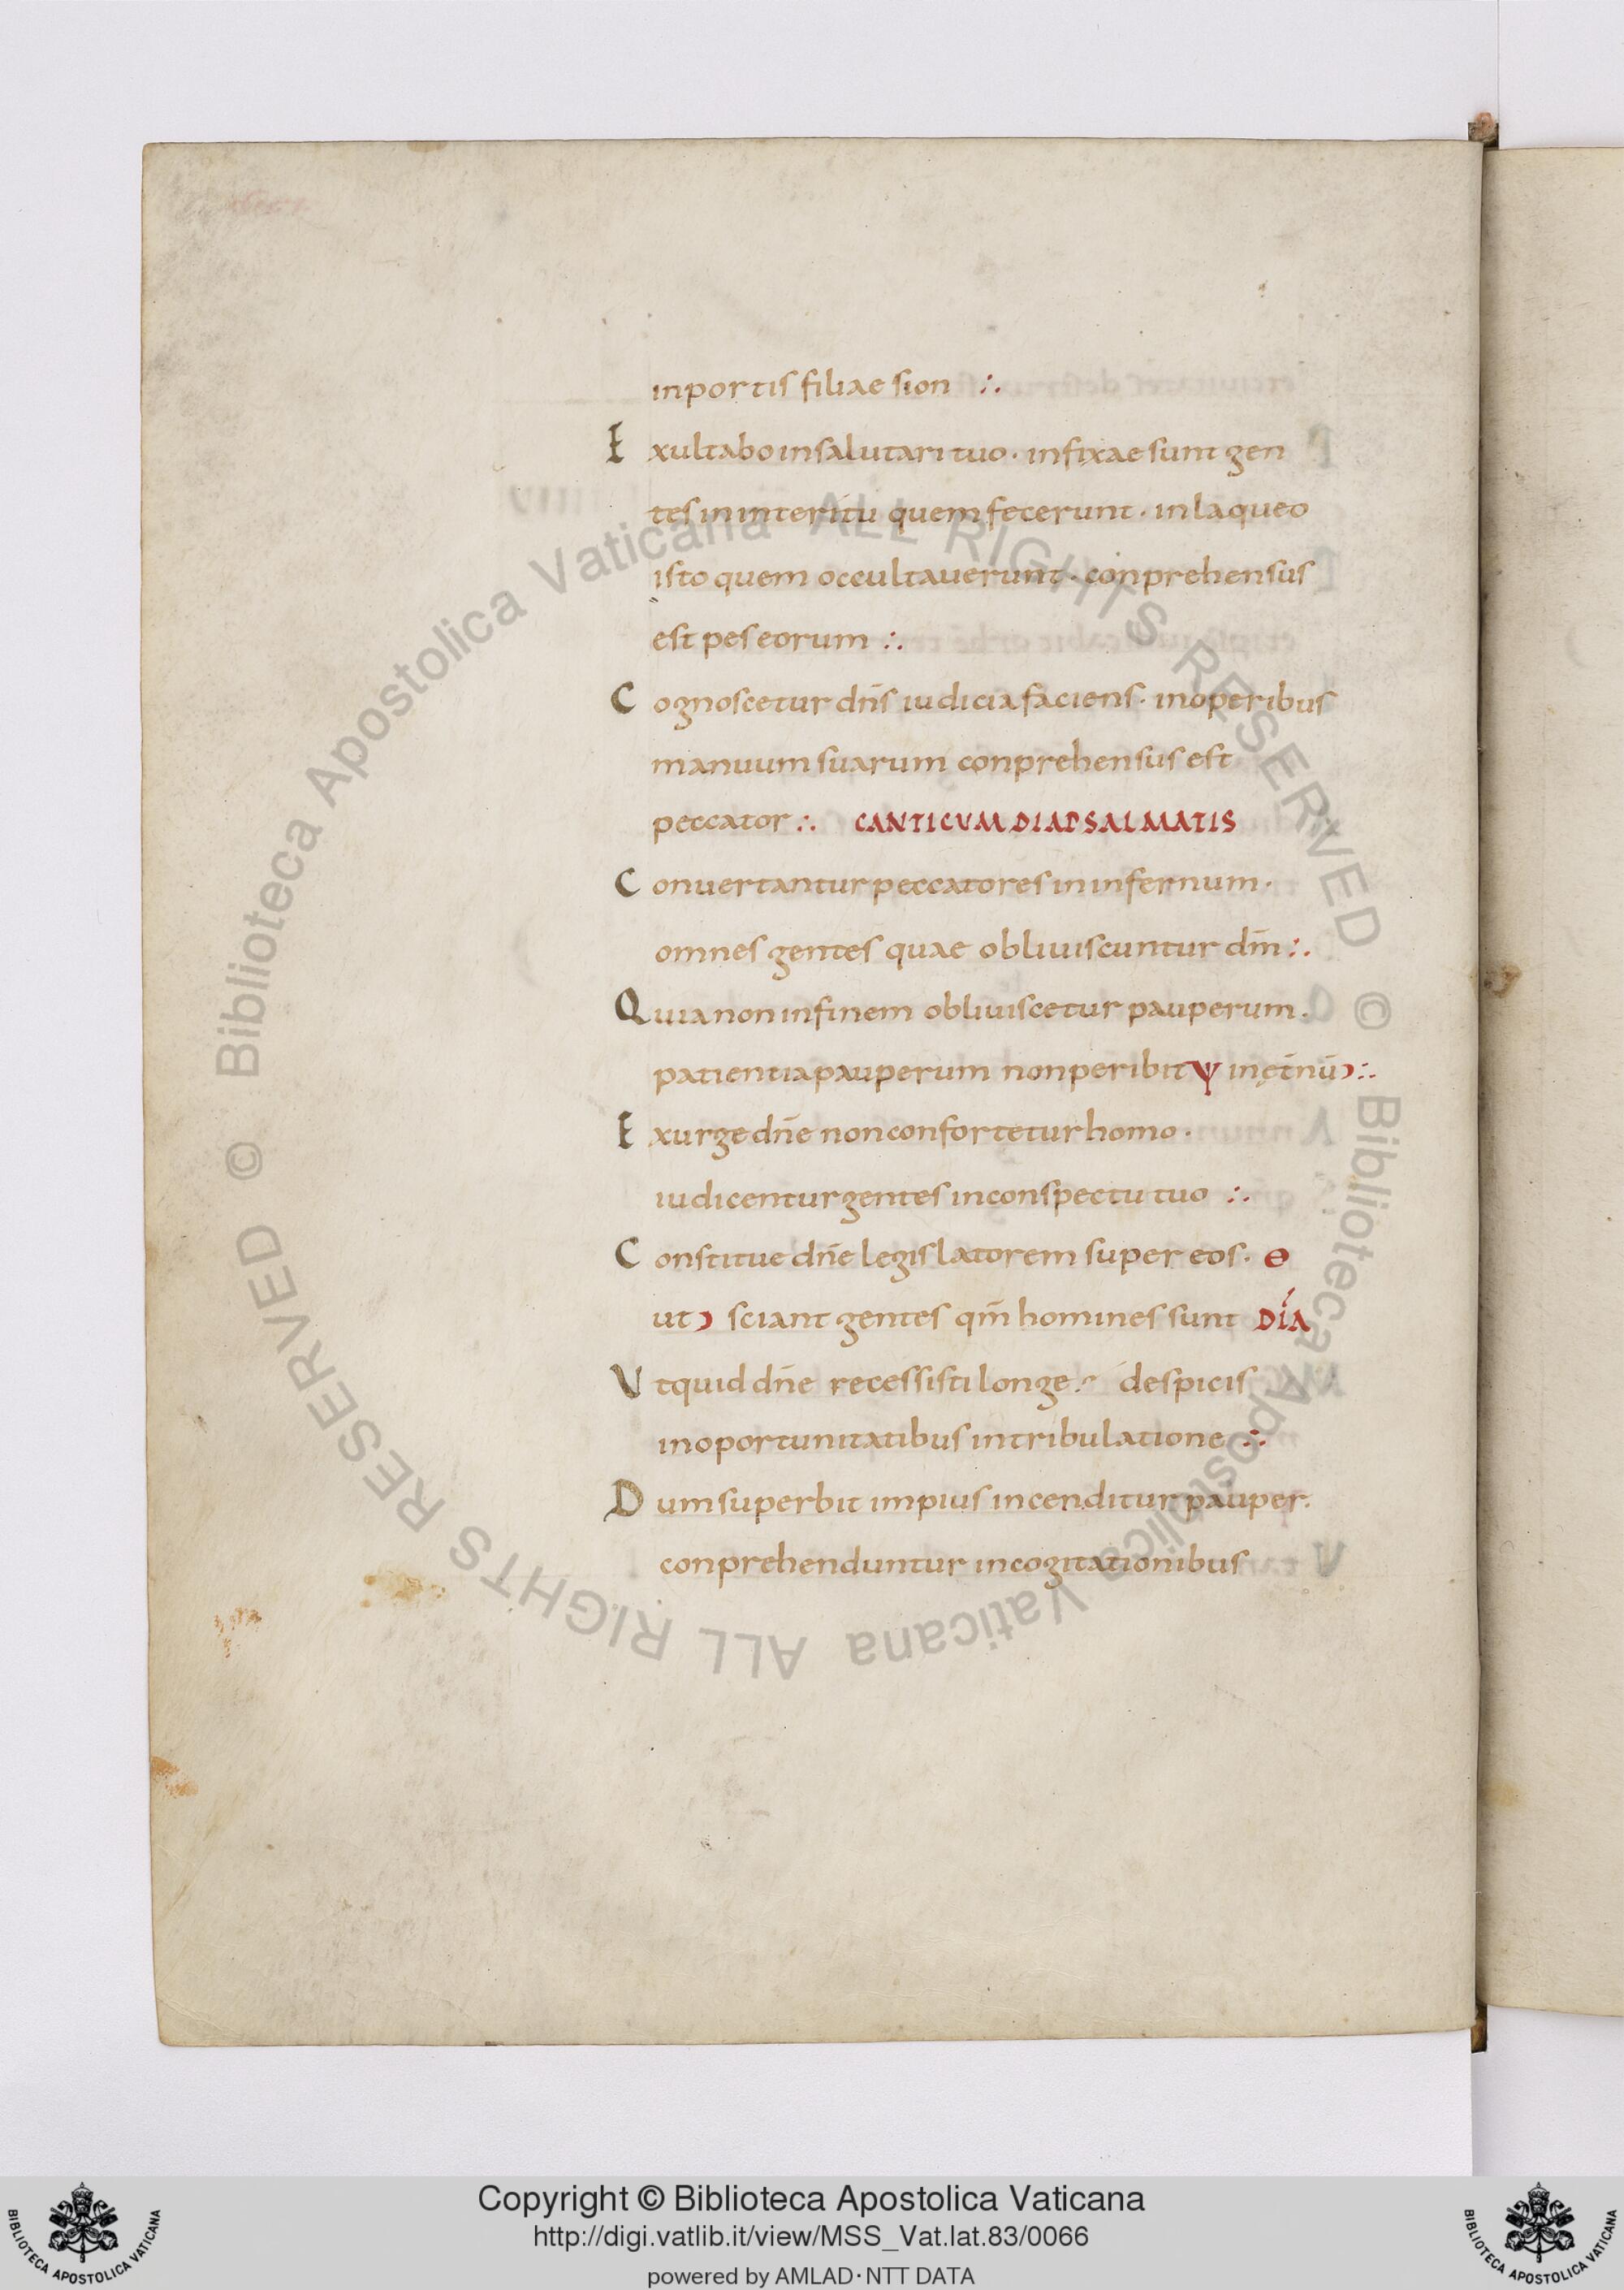 inportis filiae sion :.
Exultabo insalutari tuo · infixae sunt gen
tes ininteritu quem fecerunt · inlaqueo
isto quem occultauerunt · conprehensus
est pes eorum :.
Cognoscetur dn̄s iudicia faciens · inoperibus
manuum suarum conprehensus est
peccator :. CANTICVM DIAPSALMATIS
Conuertantur peccatores ininfernum ·
omnes gentes quae obliuiscuntur dm̄ :.
Quia non infinem obliuiscetur pauperum ·
patientia pauperum non peribit ψ in ęt̄nū :.
Exurge dn̄e non confortetur homo ·
iudicentur gentes inconspectu tuo :.
Constitue dn̄e legislatorem super eos · ɵ
ut sciant gentes qm̄ homines sunt DÍA
Vtquid dn̄e recessisti longe · despicis
inoportunitatibus intribulatione :.
Dum superbit impius incenditur pauper ·
conprehenduntur incogitationibus
© Biblioteca Apostolica Vaticana ALL RIGHTS RESERVED
© Biblioteca Apostolica Vaticana ALL RIGHTS RESERVED
Copyright © Biblioteca Apostolica Vaticana
http://digi.vatlib.it/view/MSS_Vat.lat.83/0066
powered by AMLAD·NTT DATA
BIBLIOTECA APOSTOLICA VATICANA
BIBLIOTECA APOSTOLICA VATICANA